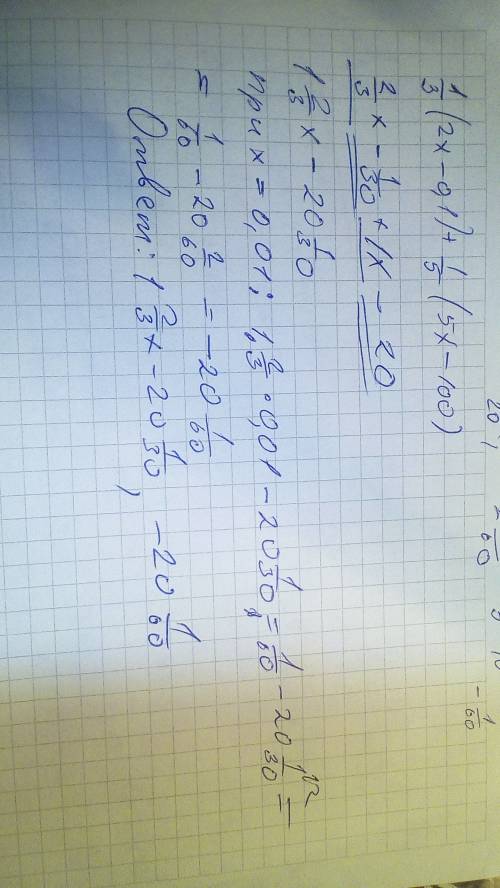 20,   2/60   5   10   - 1/60
1/3 (2x - 0,1) + 1/5 (5x - 100)
2/3 x - 1/30 + 1x - 20
1 2/3 x - 20 1/30
при x = 0,01; 1 2/3 · 0,01 - 20 1/30 = 1/60 - 20 1/30 =
= 1/60 - 20 2/60 = -20 1/60
Ответ: 1 2/3 x - 20 1/30, -20 1/60